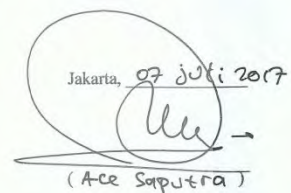 Jakarta, 07 juli 2017
(Ace Saputra)